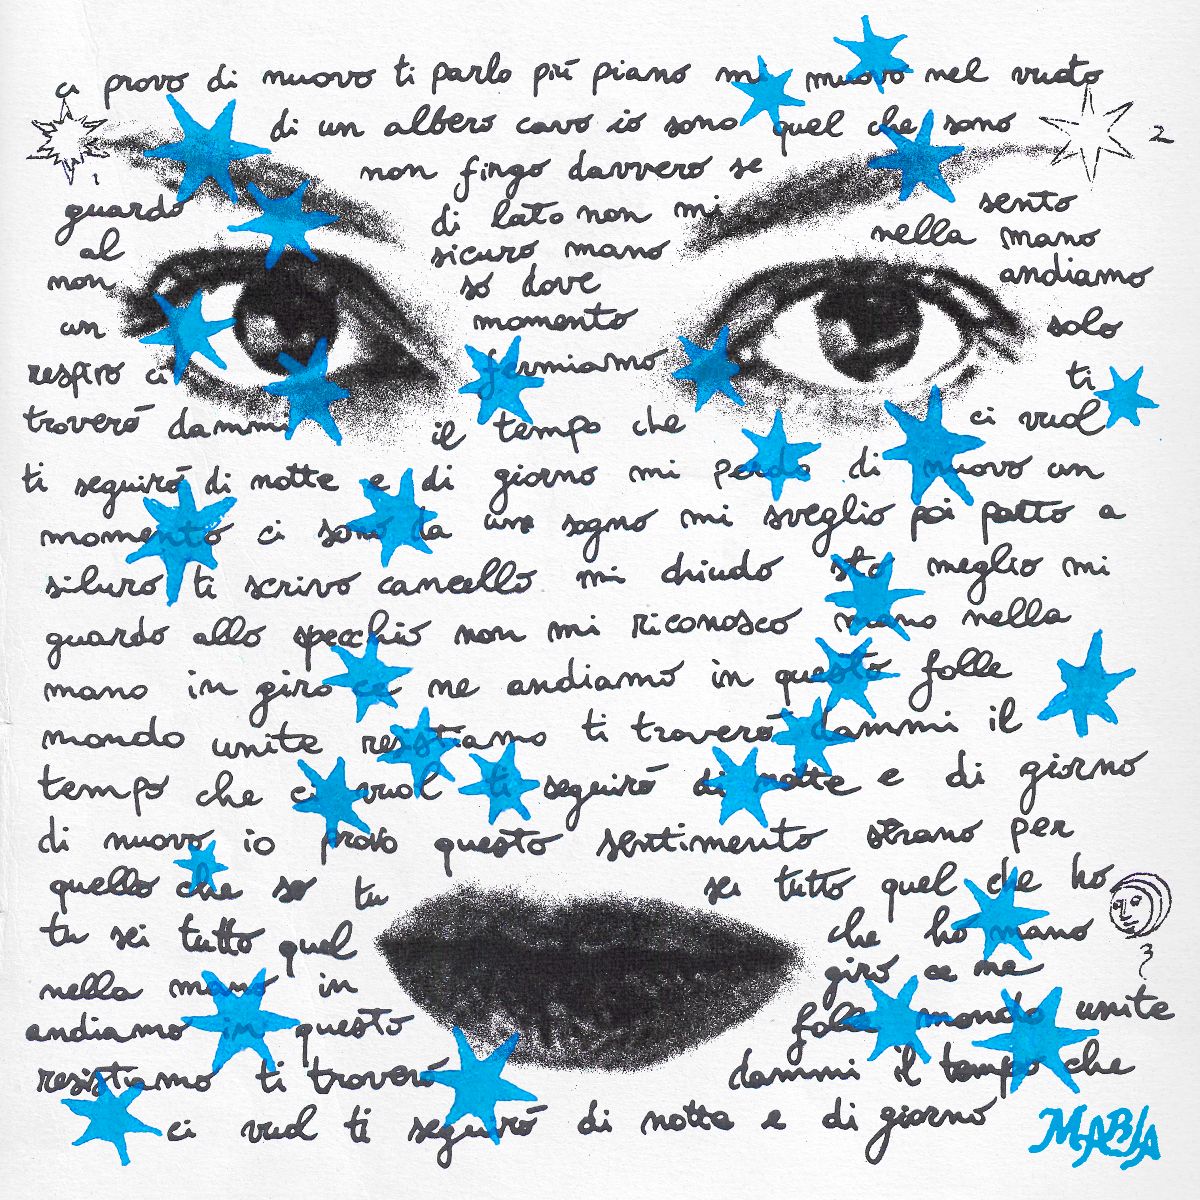 ci provo di nuovo ti parlo più piano mi muovo nel vuoto
di un albero cavo io sono quel che sono
non fingo davvero se
guardo di lato non mi sento
al sicuro mano nella mano
non so dove andiamo
un momento solo
respiro ci fermiamo ti
troverò dammi il tempo che ci vuol
ti seguirò di notte e di giorno mi perdo di nuovo un
momento ci sono da un sogno mi sveglio poi parto a
siluro ti scrivo cancello mi chiudo sto meglio mi
guardo allo specchio non mi riconosco mano nella
mano in giro ce ne andiamo in questo folle
mondo unite resistiamo ti troverò dammi il
tempo che ci vuol ti seguirò di notte e di giorno
di nuovo io provo questo sentimento strano per
quello che so tu sei tutto quel che ho
tu sei tutto quel che ho mano
nella mano in giro ce ne
andiamo in questo folle mondo unite
resistiamo ti troverò dammi il tempo che
ci vuol ti seguirò di notte e di giorno
1
2
3
MABLA